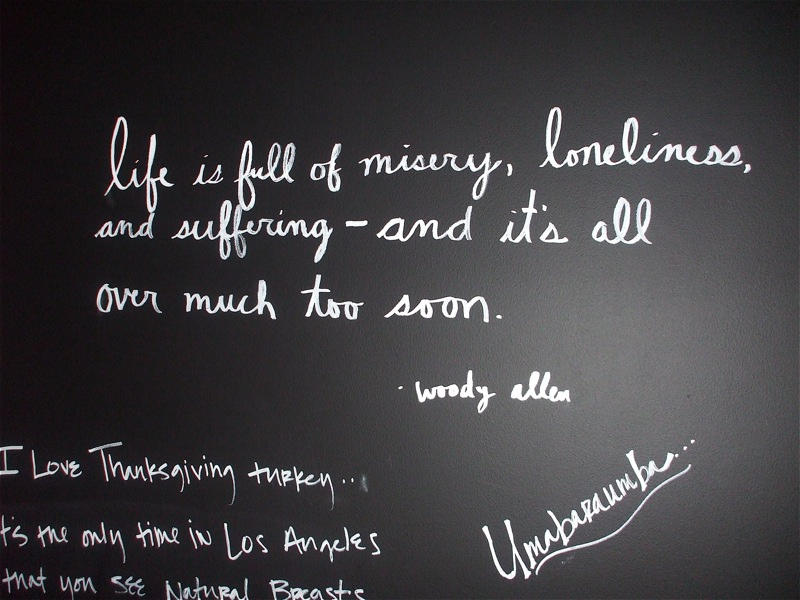 life is full of misery, loneliness,
and suffering - and it's all
over much too soon.
· woody allen
I Love Thanksgiving turkey...
t's the only time in Los Angeles
that you see Natural Breasts
Umabaraumba...